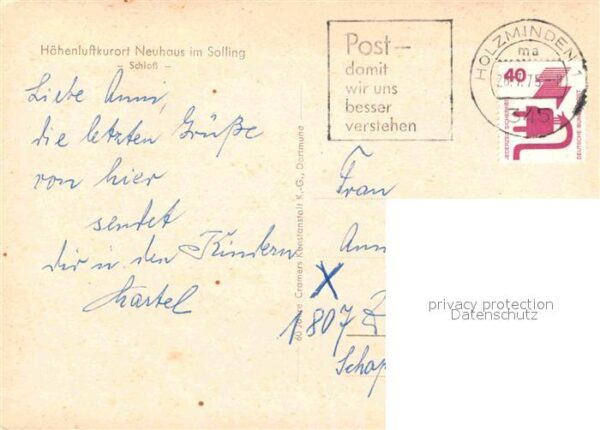 Höhenluftkurort Neuhaus im Solling
– Schloß –
Liebe Anni,
die letzten Grüße
von hier
sendet
dir u. den Kindern
60 Jahre Cramers Kunstanstalt K.-G., Dortmund
Post –
damit
wir uns
besser
verstehen
HOLZMINDEN 1
ma
345
40
JEDERZEIT SICHERHEIT
DEUTSCHE BUNDESPOST
Frau
Ann
X
1807
Schap
privacy protection
Datenschutz